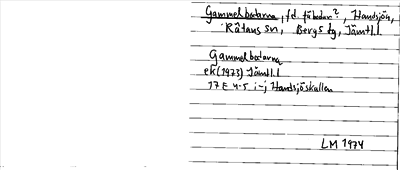 Gammelbodarna, f.d. fäbodar?, Handsjön,
Rätans sn, Bergs tg, Jämtl.l.
Gammelbodarna
ek (1973) Jämtl.l
17 E 4-5 i-j Handsjöskallen
LM 1974